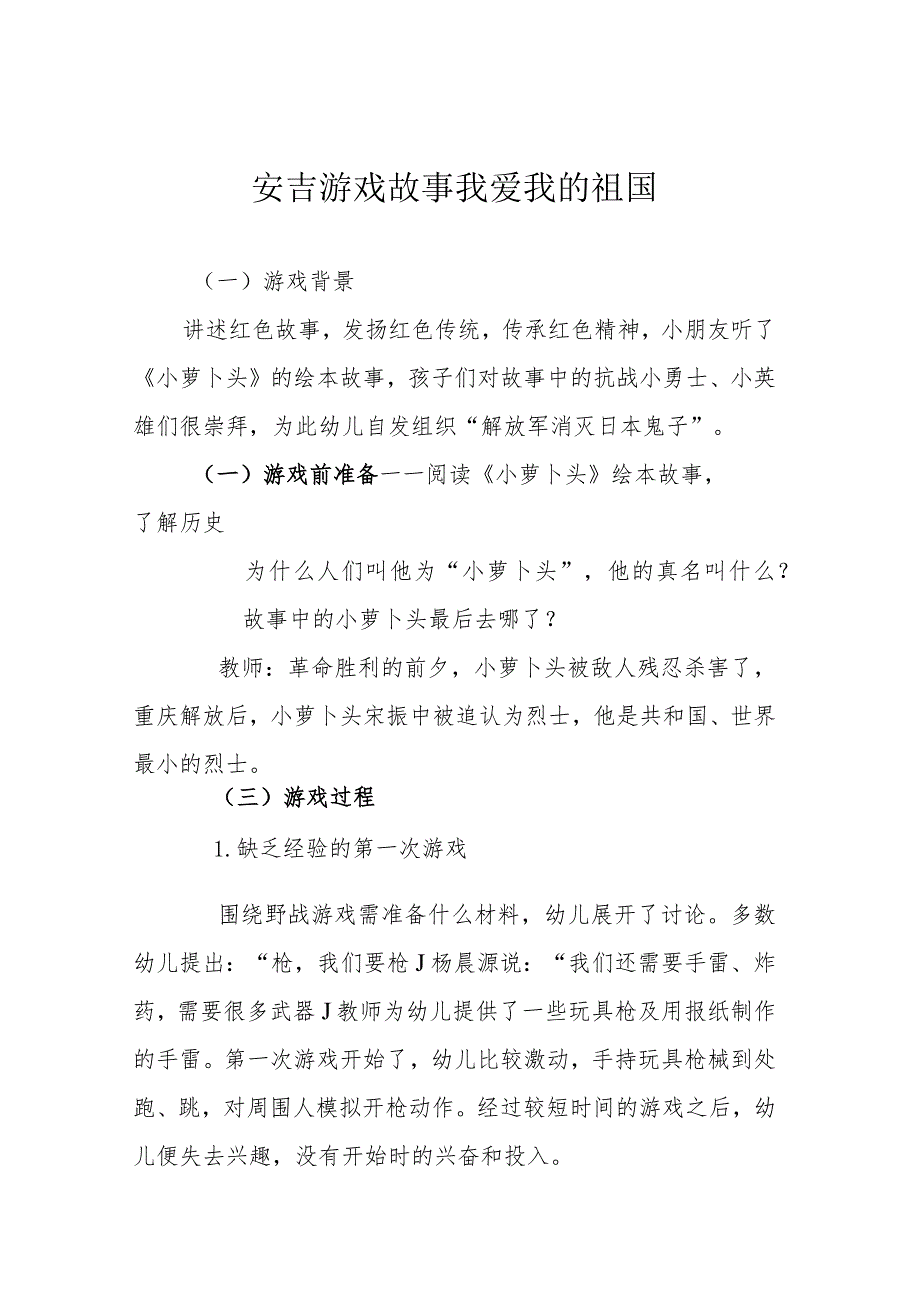 安吉游戏故事我爱我的祖国
（一）游戏背景
讲述红色故事，发扬红色传统，传承红色精神，小朋友听了
《小萝卜头》的绘本故事，孩子们对故事中的抗战小勇士、小英
雄们很崇拜，为此幼儿自发组织“解放军消灭日本鬼子”。
（一）游戏前准备一一阅读《小萝卜头》绘本故事，
了解历史
为什么人们叫他为“小萝卜头”，他的真名叫什么？
故事中的小萝卜头最后去哪了？
教师：革命胜利的前夕，小萝卜头被敌人残忍杀害了，
重庆解放后，小萝卜头宋振中被追认为烈士，他是共和国、世界
最小的烈士。
（三）游戏过程
1.缺乏经验的第一次游戏
围绕野战游戏需准备什么材料，幼儿展开了讨论。多数
幼儿提出：“枪，我们要枪J杨晨源说：“我们还需要手雷、炸
药，需要很多武器J教师为幼儿提供了一些玩具枪及用报纸制作
的手雷。第一次游戏开始了，幼儿比较激动，手持玩具枪械到处
跑、跳，对周围人模拟开枪动作。经过较短时间的游戏之后，幼
儿便失去兴趣，没有开始时的兴奋和投入。